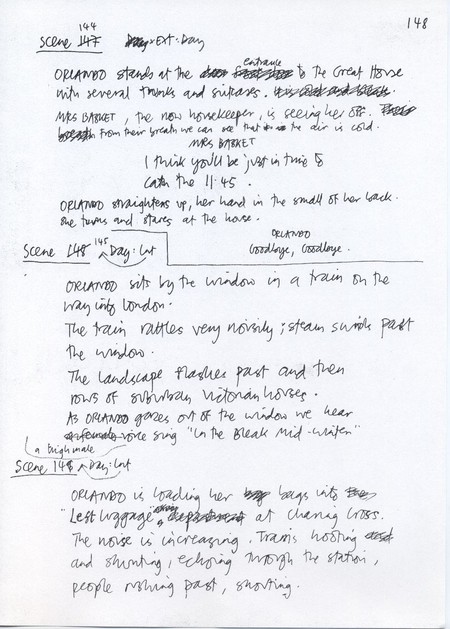 148
144
Scene 147 Day Ext. Day
entrance
ORLANDO stands at the to the Great House
with several trunks and suitcases.
MRS BASKET, the new housekeeper, is seeing her off.
breath From their breath we can see that the air is cold.
MRS BASKET
I think you'll be just in time to
catch the 11.45.
ORLANDO straightens up, her hand in the small of her back.
She turns and stares at the house.
ORLANDO
Goodbye, Goodbye.
Scene 148 145 Day: Int
ORLANDO sits by the window in a train on the
way into London.
The train rattles very noisily; steam swirls past
the window.
The landscape flashes past and then
rows of suburban Victorian houses.
As ORLANDO gazes out of the window we hear
a female voice sing "In the Bleak Mid-Winter"
a male
Scene 148 Day: Int
ORLANDO is loading her bags into
"Left luggage" department at Charing Cross.
The noise is increasing. Trains hooting and
and shunting, echoing through the station,
people rushing past, shouting.